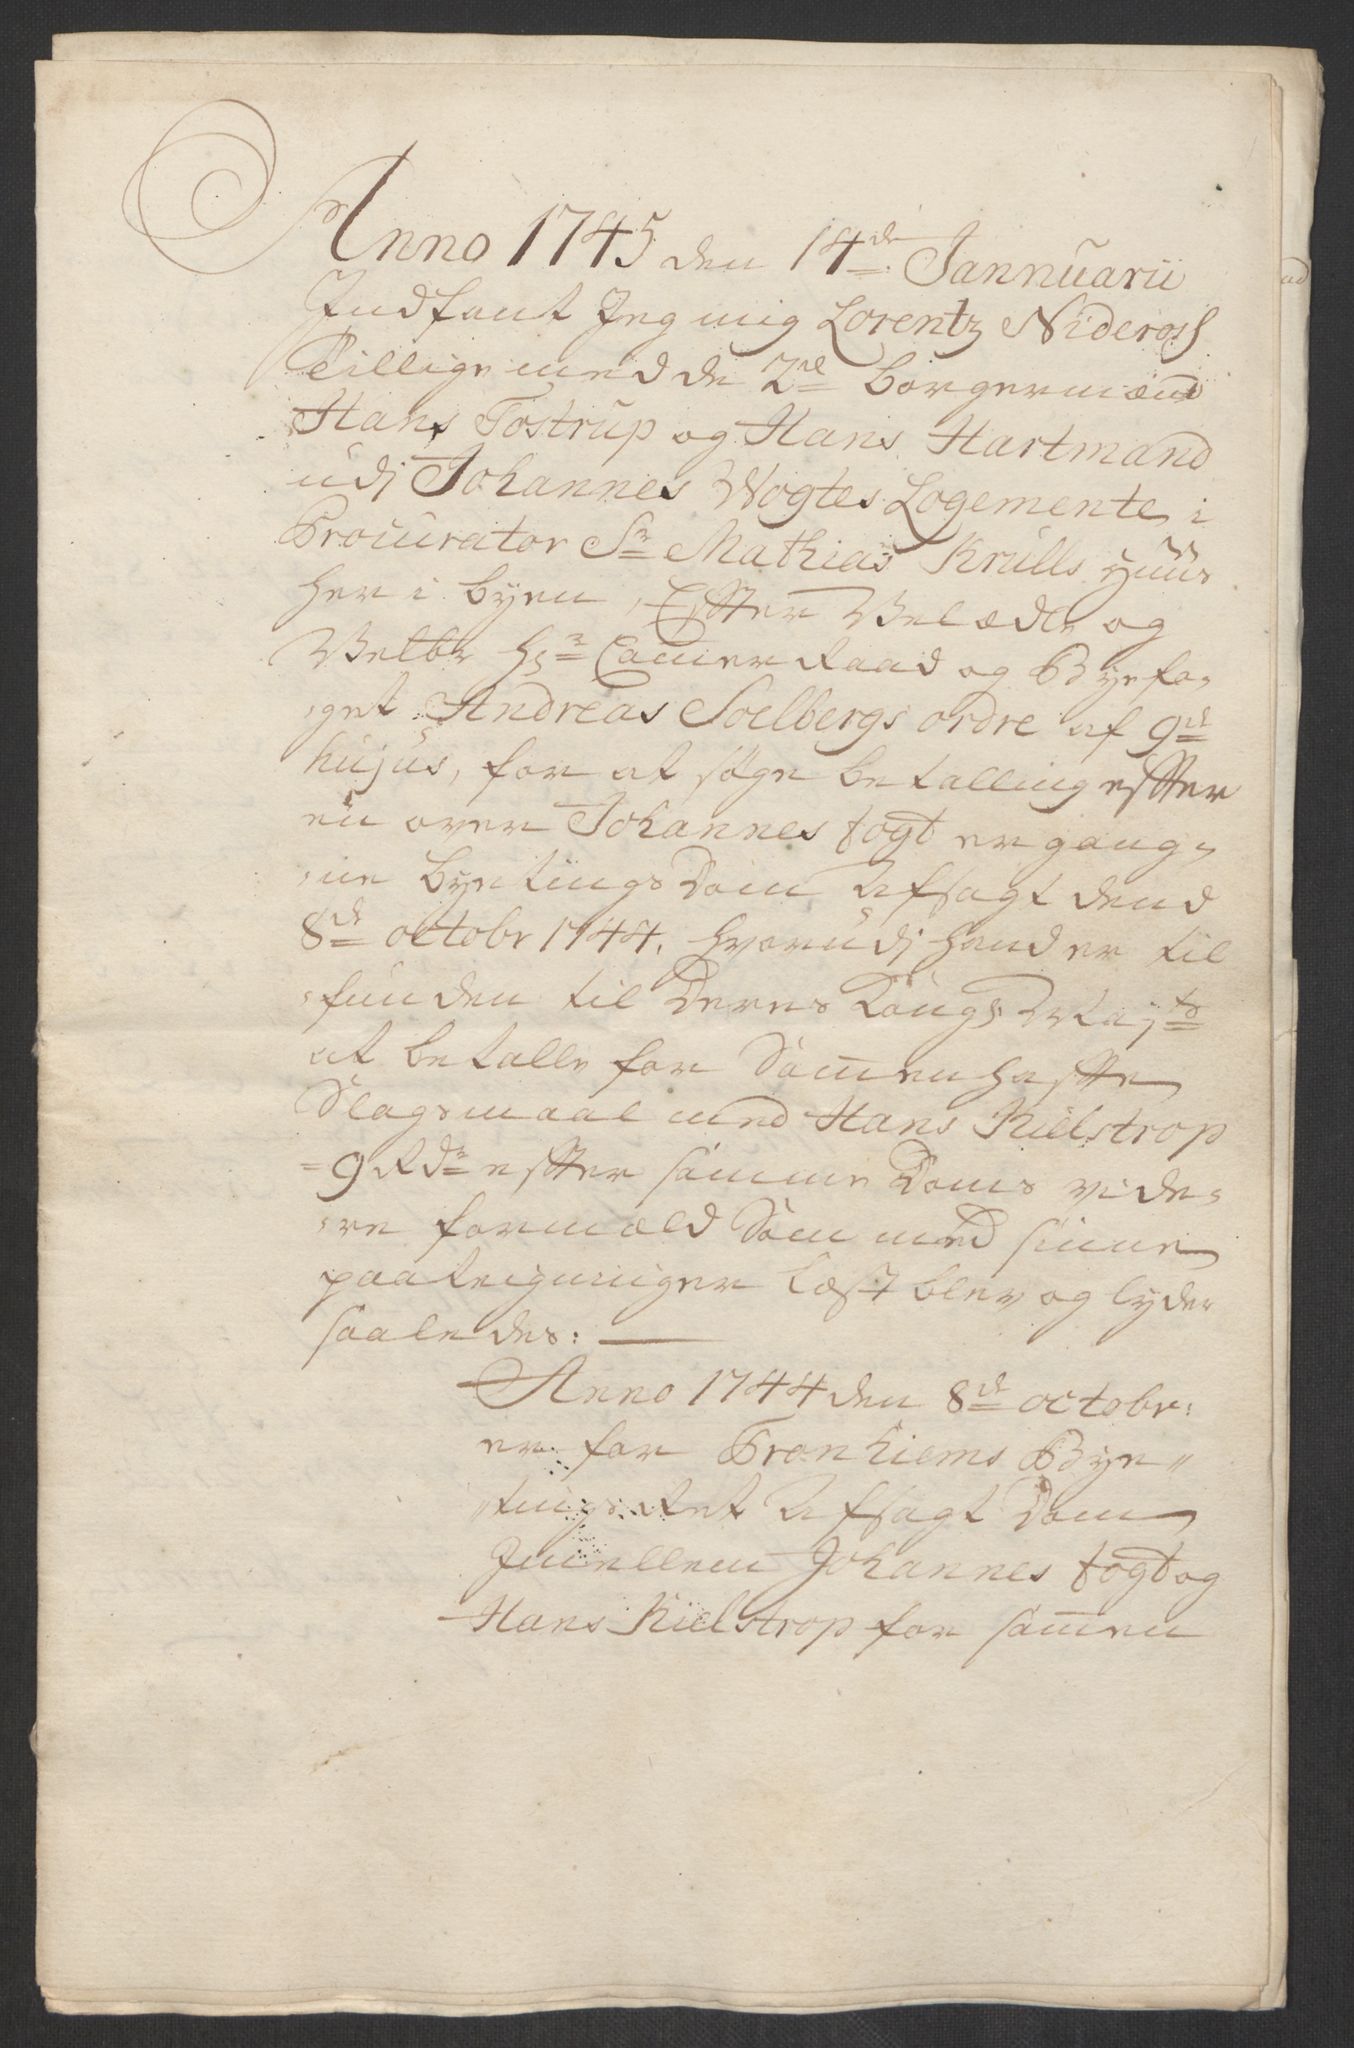 Anno 1745 den 14de Jannuarii
Indfant Jeg mig Lorentz Nideross
Tillige med de 2de borgermænd
Hans Tostrup og Hans Hartmand
udj Johannes Wogtes Logemente i
Procurator Sr Mathias Krulls huus
her i byen, Effter Velædle og
Velbr Hr Camer Raad og Byefo-
-get Andreas Soelbergs ordre af 9de
hujus, for at søge betalling effter
en over Johannes fogt ergang-
-ne byetings Dom Afsagt dend
8de octobr 1744. hvorudj hand er til
-funden til Deres Kongl Mayts
at betalle for Sammenhefte
Slagsmaal med Hans Kielstrop
9 Rdr effter samme Doms vide-
-re formæld Som med sinne
paateigninger læst blev og lyder
saaledes:
Anno 1744 den 8de octobr:
er for Tronhiems Bye-
-tings Ret Afsagt Dom
Imellem Johannes fogt og
Hans Kielstrop for sammen